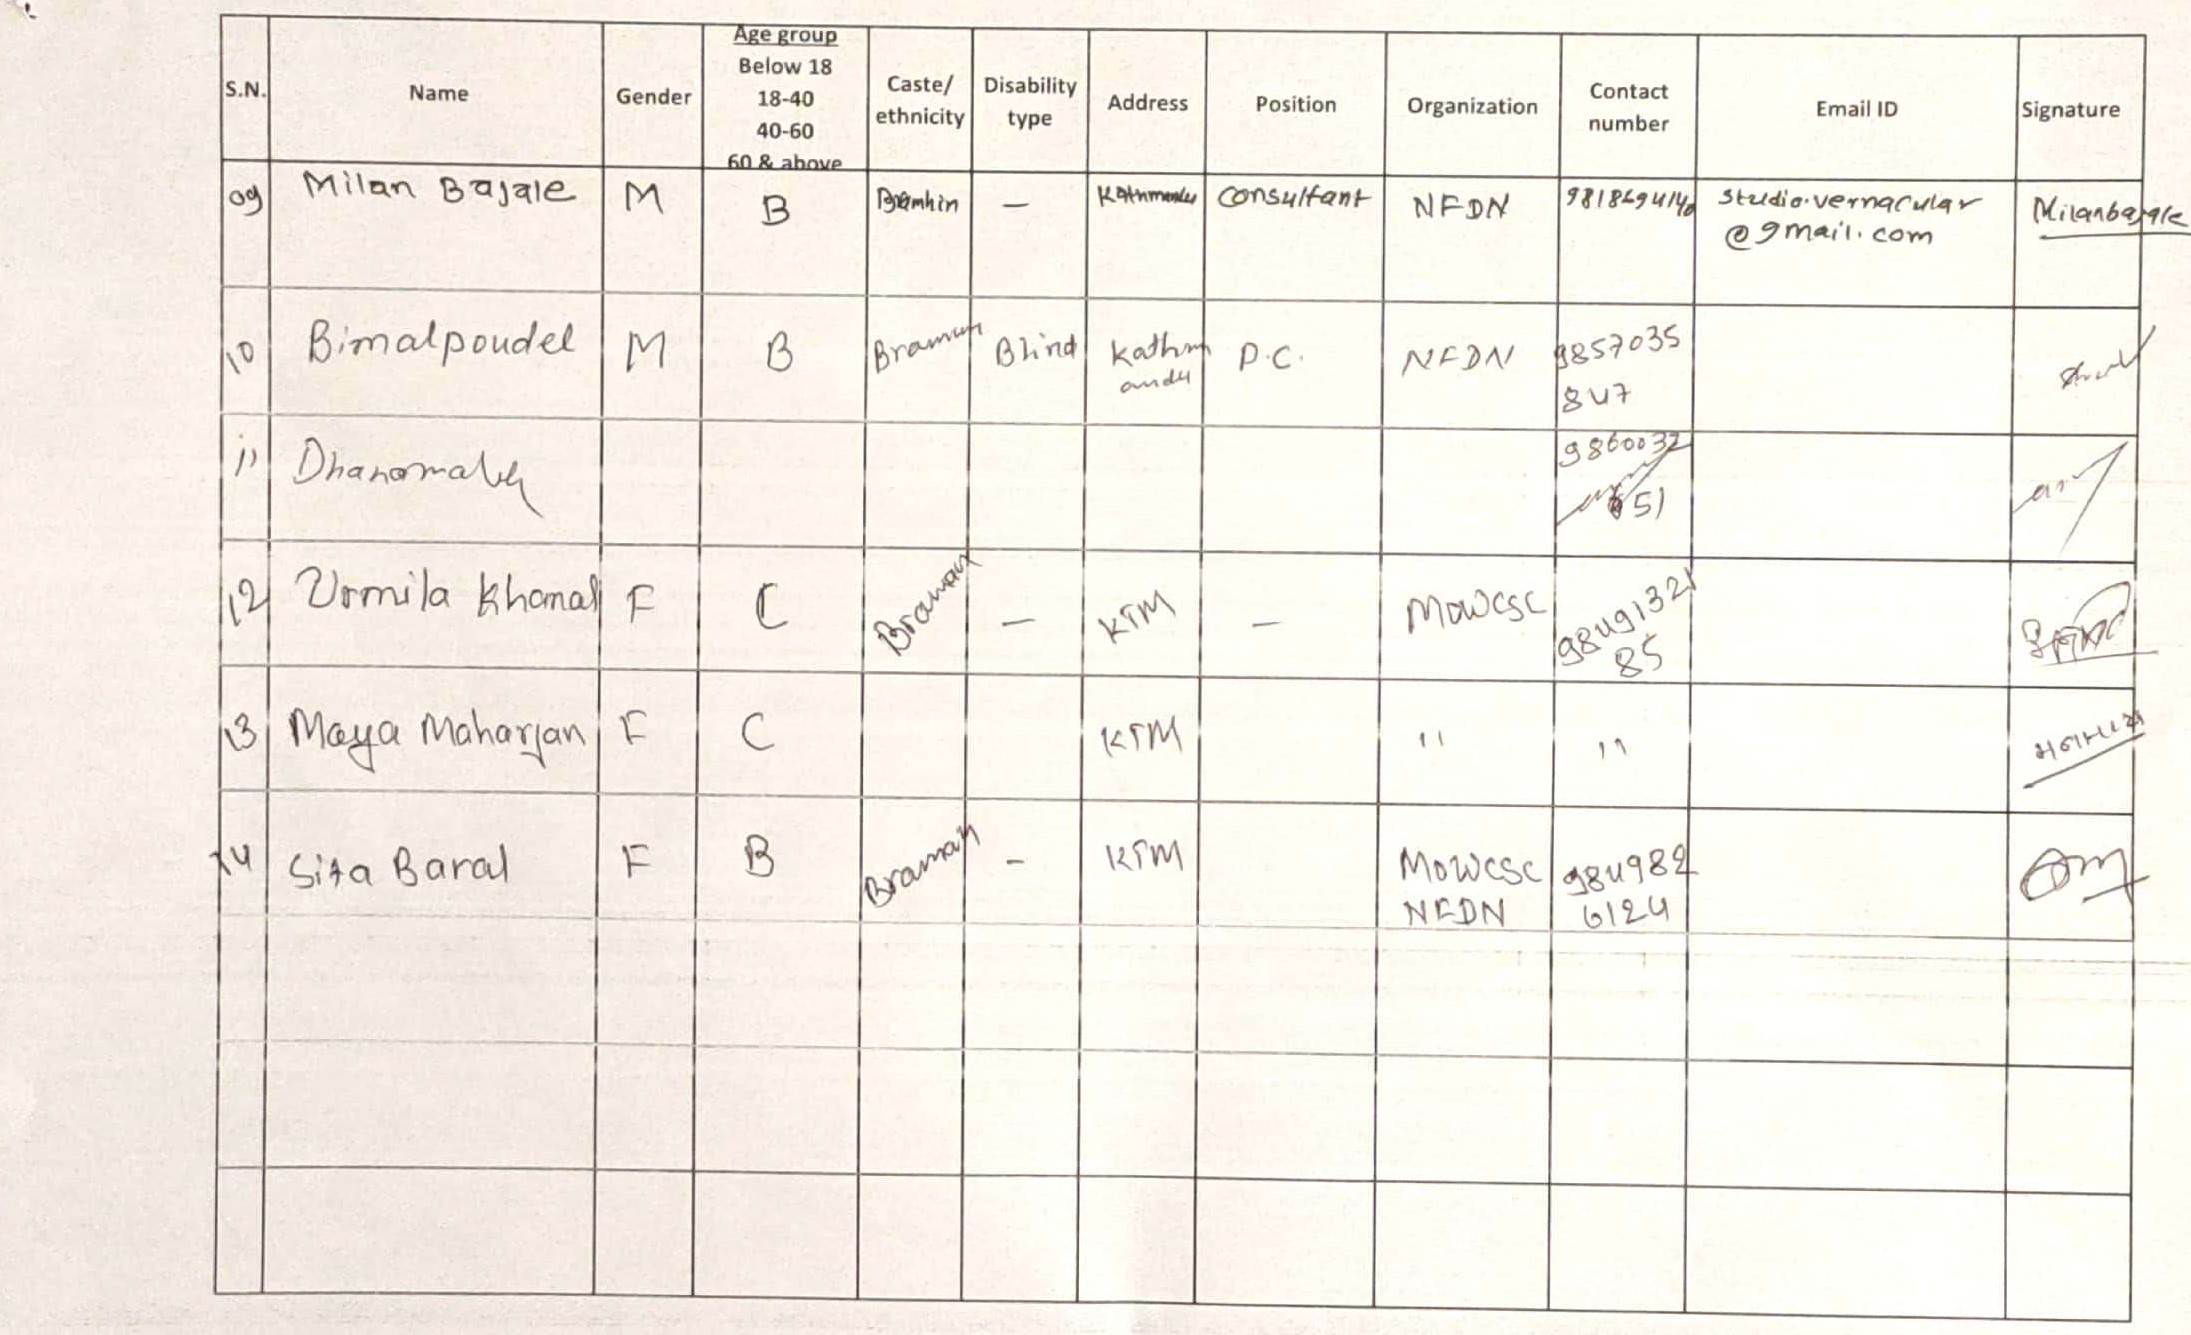 S.N. Name Gender Age group Below 18 18-40 40-60 60 & above Caste/ ethnicity Disability type Address Position Organization Contact number Email ID Signature
09 Milan Bajale M B Bramhin — Kathmandu consultant NFDN studio.vernacular Milanbajale
@gmail.com
10 Bimalpoudel M B Blind Kathm P.C. NFDN 9857035
andu 847
11 9860032
51
12 Urmila Khanal F C Braman — KTM — MOWCSC 98491321
85
13 Maya Maharjan F C KTM " "
14 Sita Baral F B Braman - KTM MOWCSC 984982
NFDN 6124